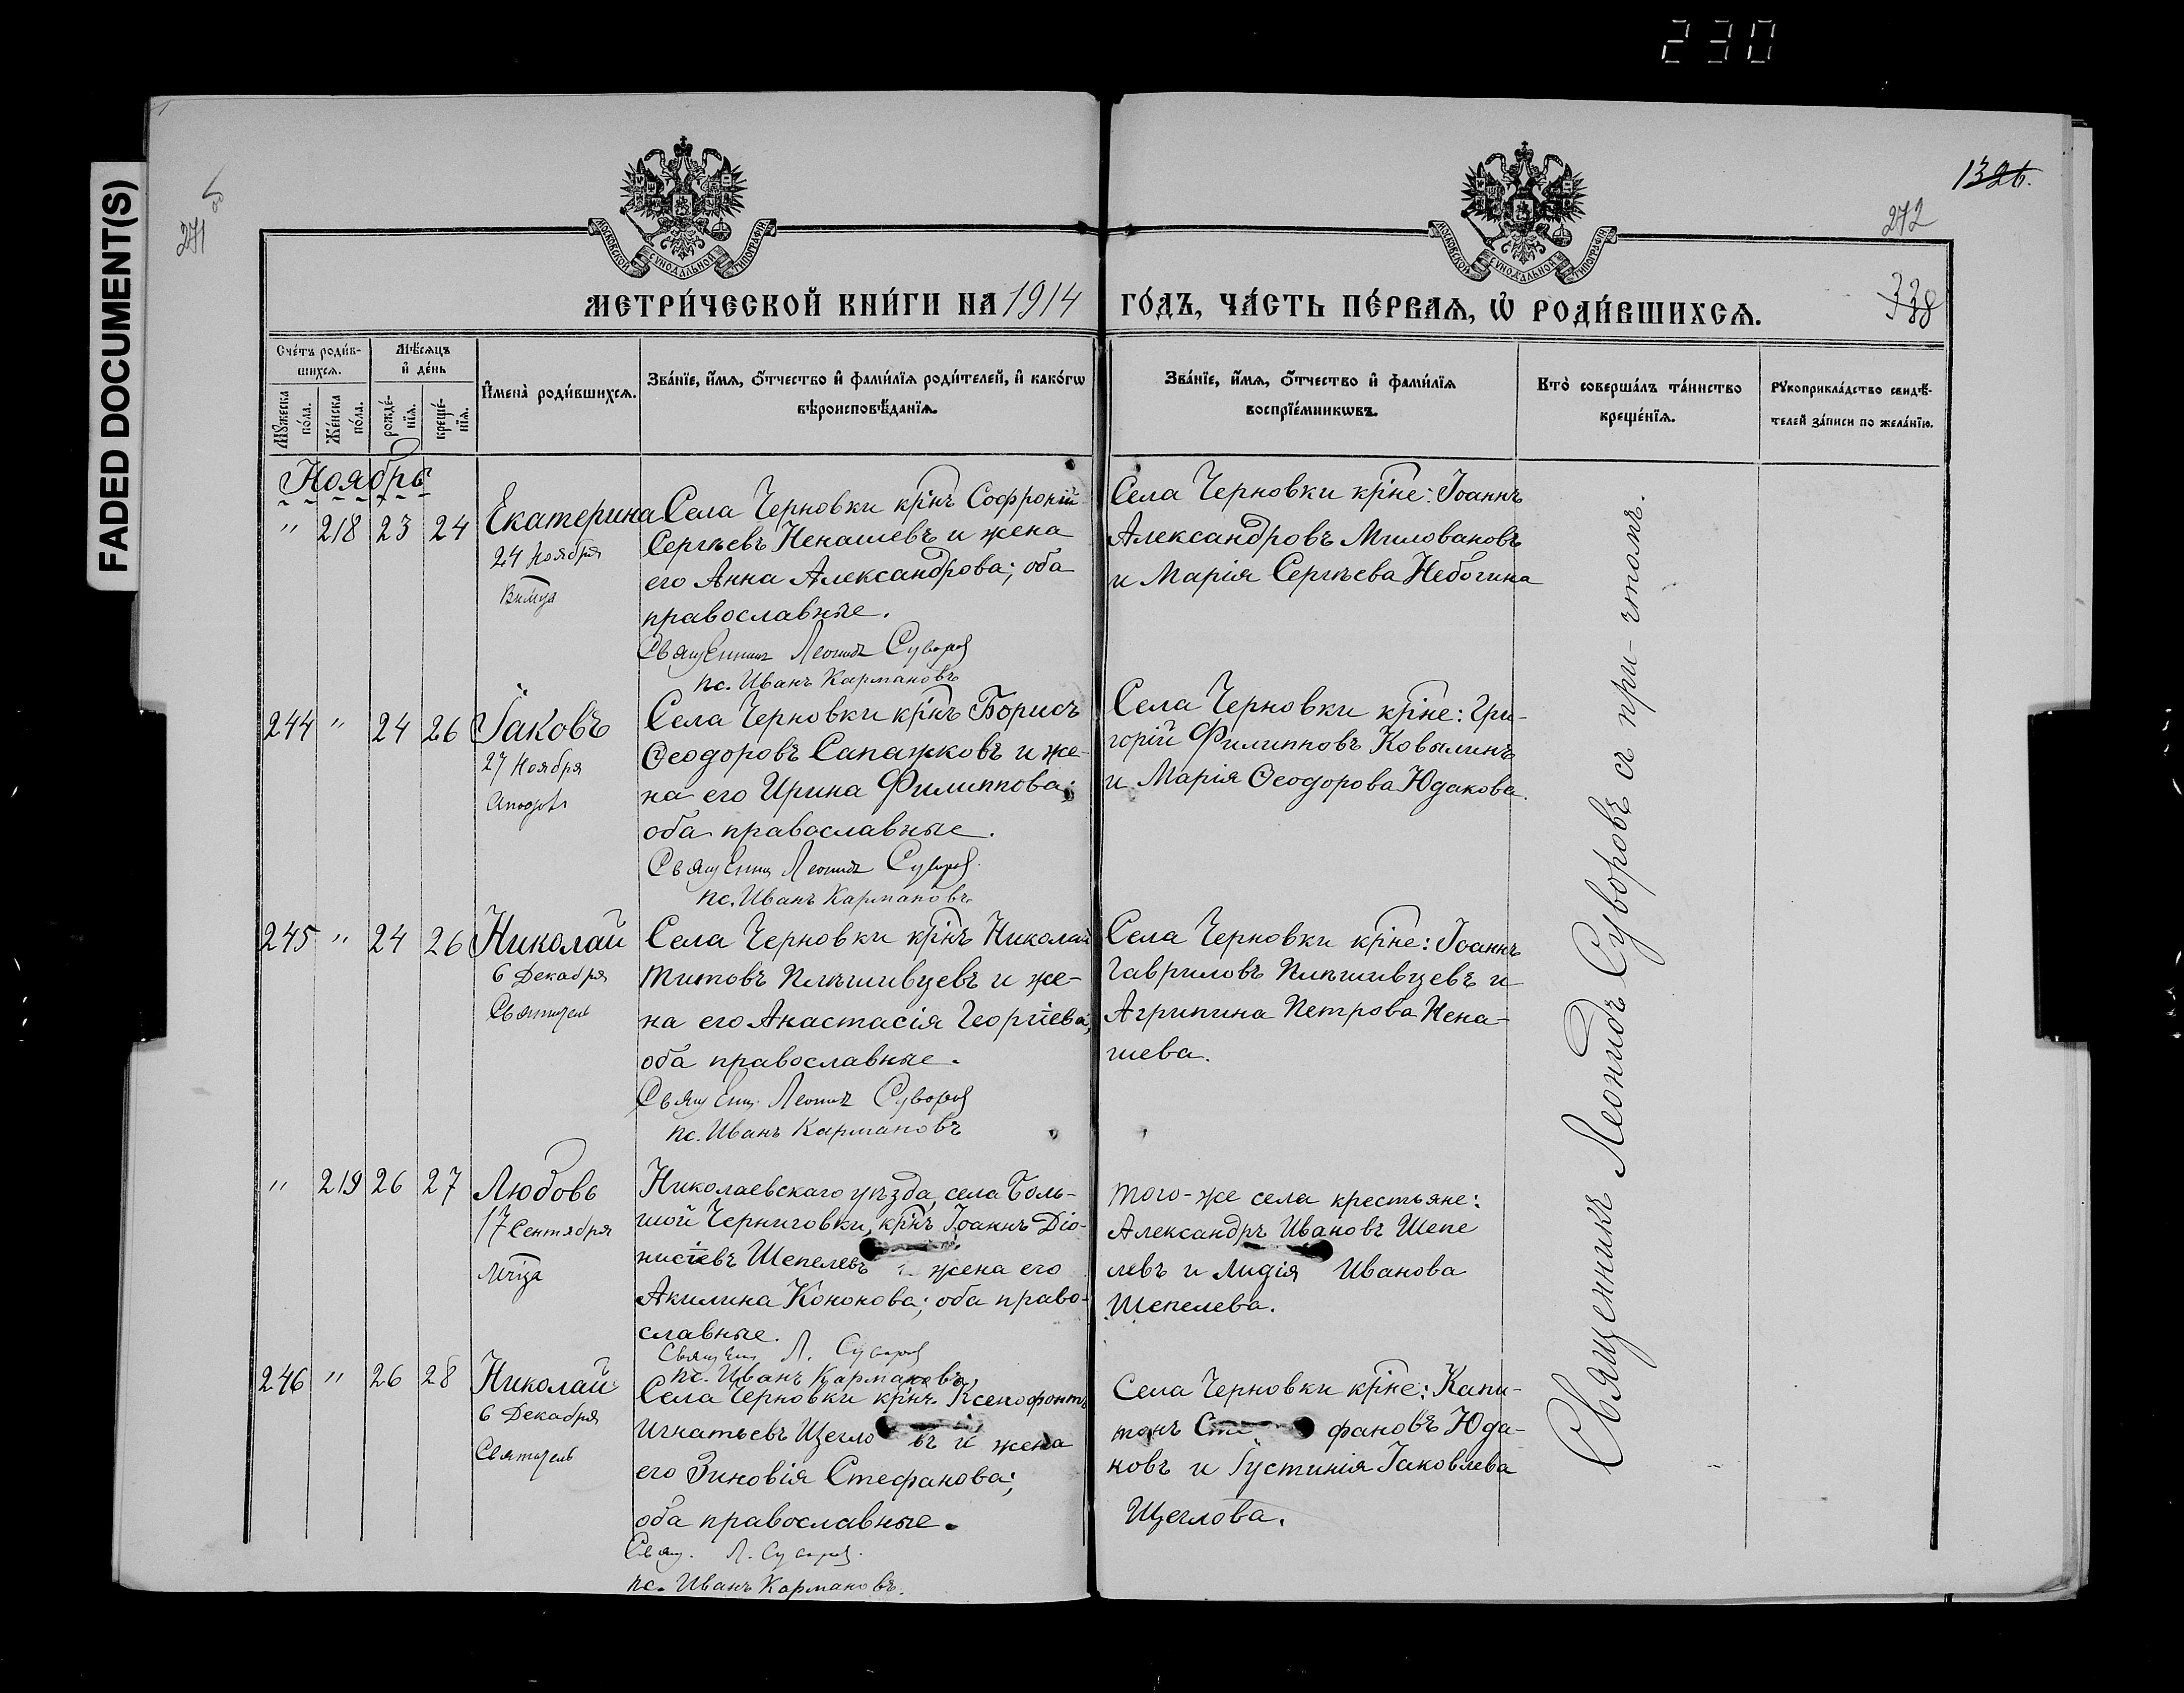 230
FADED DOCUMENT(S)
271
1326.
272
338
МОСКОВСКОЙ СѴНОДАЛЬНОЙ ТИПОГРАФІИ
МОСКОВСКОЙ СѴНОДАЛЬНОЙ ТИПОГРАФІИ
МЕТРИ́ЧЕСКОЙ КНИ́ГИ НА 1914 ГО́ДЪ, ЧА́СТЬ ПЕ́РВАѦ, Ѡ҆ РОДИ́ВШИХСѦ.
Сче́тъ роди́в-
шихсѧ.
Мꙋ́жеска
по́ла.
Же́нска
по́ла.
Мѣ́сѧцъ
и҆ де́нь
рожде́-
нїѧ.
креще́-
нїѧ.
И҆мена̀ роди́вшихсѧ.
Зва́нїе, и҆́мѧ, ѻ҆́тчество и҆ фами́лїѧ роди́телей, и҆ како́гѡ
вѣроисповѣ́данїѧ.
Зва́нїе, и҆́мѧ, ѻ҆́тчество и҆ фами́лїѧ
воспрїе́мникѡвъ.
Кто̀ соверша́лъ та́инство
креще́нїѧ.
Рꙋкоприкла́дство свидѣ́-
телей за́писи по жела́нїю.
Ноябрь
" 218 23 24 Екатерина
24 Ноября
Вмца
Села Черновки кр҃нъ Софроній
Сергѣевъ Ненашевъ и жена
его Анна Александрова; оба
православные.
Священникъ Леонидъ Суворовъ
пс. Иванъ Кармановъ
Села Черновки кр҃не: Іоаннъ
Александровъ Миловановъ
и Марія Сергѣева Небогина
244 " 24 26 Іаковъ
27 Ноября
Села Черновки кр҃нъ Борисъ
Ѳеодоровъ Сапажковъ и же-
на его Ирина Филиппова;
оба православные.
Священ Леонидъ Суворовъ
пс. Иванъ Кармановъ
Села Черновки кр҃не: Гри-
горій Филипповъ Ковылинъ
и Марія Ѳеодорова Юдакова.
245 " 24 26 Николай
6 Декабря
Святитель
Села Черновки кр҃нъ Николай
Титовъ Плѣшивцевъ и же-
на его Анастасія Георгіева;
оба православные.
Священ. Леонидъ Суворовъ
пс. Иванъ Кармановъ
Села Черновки кр҃не: Іоаннъ
Гавриловъ Плѣшивцевъ и
Агрипина Петрова Нена-
шева.
" 219 26 27 Любовь
17 Сентября
Мчца
Николаевскаго уѣзда, села Боль-
шой Черниговки, кр҃нъ Іоаннъ Діо-
нисіевъ Шепелевъ и жена его
Акилина Кононова; оба право-
славные.
Священ Л. Суворовъ
пс. Иванъ Кармановъ
Того-же села крестьяне:
Александръ Ивановъ Шепе
левъ и Лидія Иванова
Шепелева.
246 " 26 28 Николай
6 Декабря
Святитель
Села Черновки кр҃нъ Ксенофонтъ
Игнатьевъ Щегло въ и жена
его Зиновія Стефанова;
оба православные.
Свящ. Л. Суворовъ.
пс. Иванъ Кармановъ.
Села Черновки кр҃не: Капи-
тонъ Сте фановъ Юда-
ковъ и Іустинія Іаковлева
Щеглова.
Священникъ Леонидъ Суворовъ съ при-чтомъ.